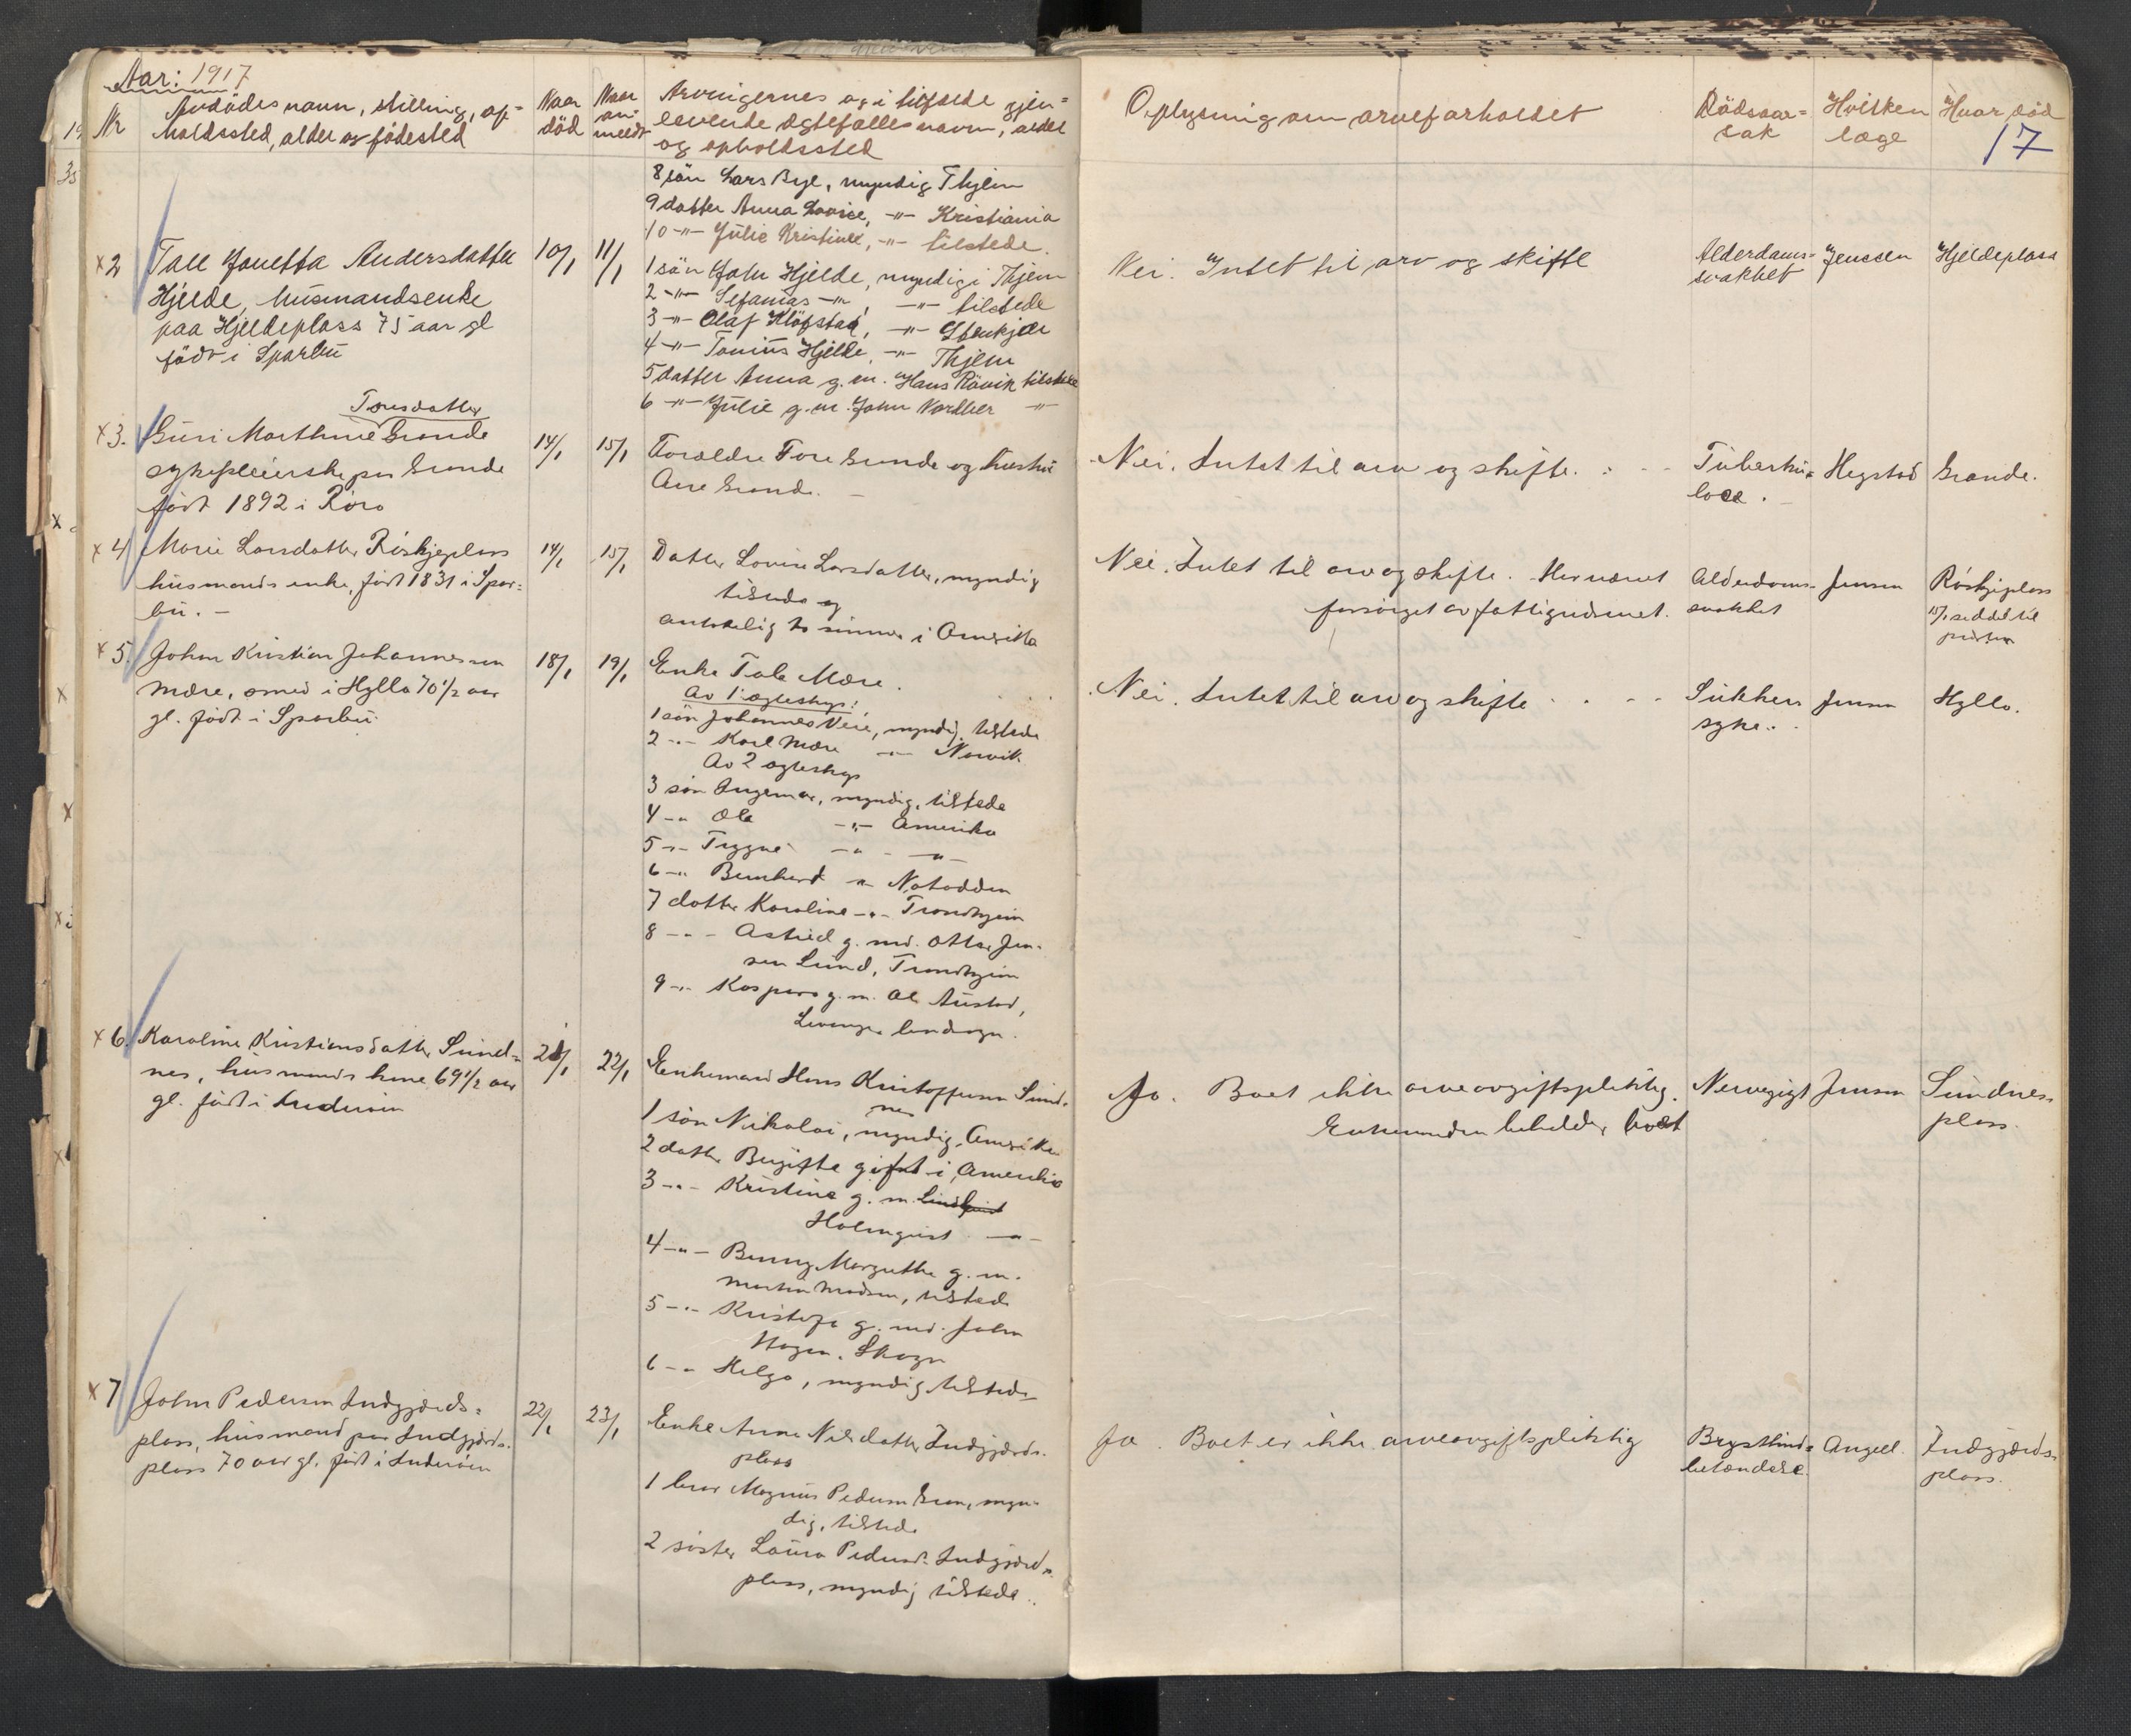 Aar: 1917
Nr
Avdödes navn, stilling, op=
holdssted, alder og födested
Naar
död
Naar
an=
meldt
Arvingernes og i tilfælde gjen=
levende ægtefælles navn, alder
og opholdssted
Oplysning om arveforholdet
Dödsaar=
sak
Hvilken
læge
Hvor död
17
8 sön Lars Bye, myndig Thjem
9 datter Anna Lovise, -"- Kristiania
10 -"- Julie Kristine, -"- tilstede.
x2 Tale Jonetta Andersdatter
Hjelde, husmandsenke
paa Hjeldeplass 75 aar gl
født i Sparbu
10/1
11/1
1 sön John Hjelde, myndig i Thjem
2 -"- Sefanias -"-, -"- tilstede
3 -"- Olaf Klöfstad, -"- Stenkjær
4 -"- Tonius Hjelde, -"- Thjem
5 datter Anna g.m. Hans Rövik tilstede
6 -"- Julie g.m. John Nordber -"-
Nei. Intet til arv og skifte
Alderdoms=
svakhet
Jenssen
Hjeldeplass
Toresdatter
x3. Guri Marthine Grande
sykepleierske paa Grande
født 1892 i Røra
14/1
15/1
Forældre Tore Grande og hustru
Ane Grande. -
Nei. Intet til arv og skifte.
Tuberku=
lose.
Hegstad
Grande.
x4 Marie Larsdatter Röskjeplass
husmands enke, født 1831 i Spar=
bu. -
14/1
15/1
Datter Lovise Larsdatter, myndig
tilstede og
antakelig to sönner i Amerika
Nei. Intet til arv og skifte. Har været
forsörget av fattigvæsenet.
Alderdoms-
svakhet
Jenssen
Röskjeplass
15/1 seddel til
presten
x5. Johan Kristian Johannessen
Mære, smed i Hylla 70 1/2 aar
gl. født i Sparbu.
18/1
19/1
Enke Tale Mære.
Av 1. ægteskap:
1 sön Johannes Veie, myndig, tilstede
2 -"- Karl Mære -"- Narvik
Av 2 ægteskap
3 sön Ingemar, myndig, tilstede
4 -"- Ole -"- Amerika
5 -"- Trygve -"- -"-
6 -"- Bernhard -"- Notodden
7 datter Karoline -"- Trondhjem
8 -"- Astrid g. med. Otto Jen-
sen Lund, Trondhjem
9 -"- Kaspara g.m. Ole Austad,
Levanger landsogn.
Nei. Intet til arv og skifte
Sukker
syke.
Jenssen
Hylla.
x6. Karoline Kristiansdatter Sund=
nes, husmands kone 69 1/2 aar
gl. født i Inderöen
21/1
22/1
Enkemand Hans Kristoffersen Sund-
nes
1 sön Nikolai, myndig, Amerika
2 datter Bergitte gift i Amerika
3 -"- Kristine g.m.
Holmqvist -"-
4 -"- Benny Margrethe g.m.
Martin Madsen, tilstede
5 -"- Kristofa g. med. John
Hagen, Skogn
6 -"- Helga, myndig tilstede
Ja. Boet ikke arveavgiftspliktig.
Enkemanden beholder boet
Nervegigt
Jenssen
Sundnes-
plass.
x7 John Pedersen Indgjærds=
plass, husmand paa Indgjærds-
plass 70 aar gl. født i Inderöen
22/1
23/1
Enke Anne Nilsdatter Indgjærds-
plass
1 bror Magnus Pedersen Gran, myn-
dig, tilstede
2 söster Laura Pedersd. Indgjærds-
plass, myndig tilstede.
Ja. Boet er ikke arveavgiftspliktig
Brysthinde=
betændelse.
Angell.
Indgjærds-
plass.